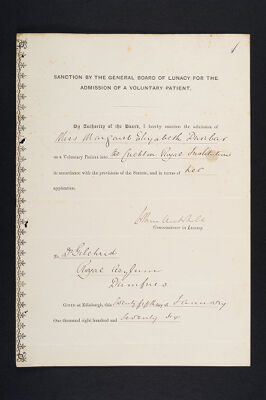 1
SANCTION BY THE GENERAL BOARD OF LUNACY FOR THE
ADMISSION OF A VOLUNTARY PATIENT.
By Authority of the Board, I hereby sanction the admission of
Miss Margaret Elizabeth Dunbar
as a Voluntary Patient into the Crichton Royal Institution
in accordance with the provisions of the Statute, and in terms of her
application.
Commissioner in Lunacy.
To Dr Gilchrist
Royal Asylum
Dumfries
Given at Edinburgh, this twenty fifth day of January
One thousand eight hundred and seventy six